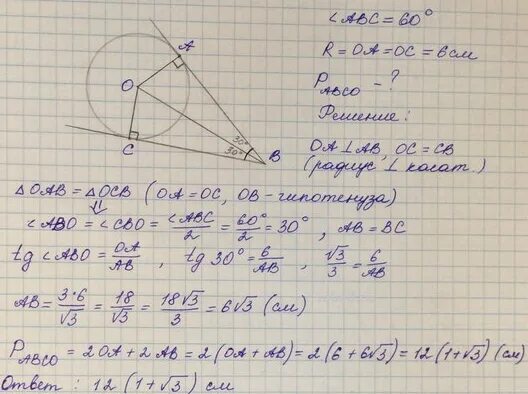 ∠ABC = 60°
R = OA = OC = 6 см
P ABCO - ?
Решение:
OA ⊥ AB, OC = CB
(радиус ⊥ касат.)
A
O
C
B
30°
30°
△OAB = △OCB (OA = OC, OB - гипотенуза)
⇓
∠ABO = ∠CBO = ∠ABC/2 = 60°/2 = 30°, AB = BC
tg ∠ABO = OA/AB, tg 30° = 6/AB, √3/3 = 6/AB
AB = 3*6/√3 = 18/√3 = 18√3/3 = 6√3 (см)
P ABCO = 2OA + 2AB = 2(OA + AB) = 2(6 + 6√3) = 12(1+√3) (см)
Ответ: 12(1+√3) см